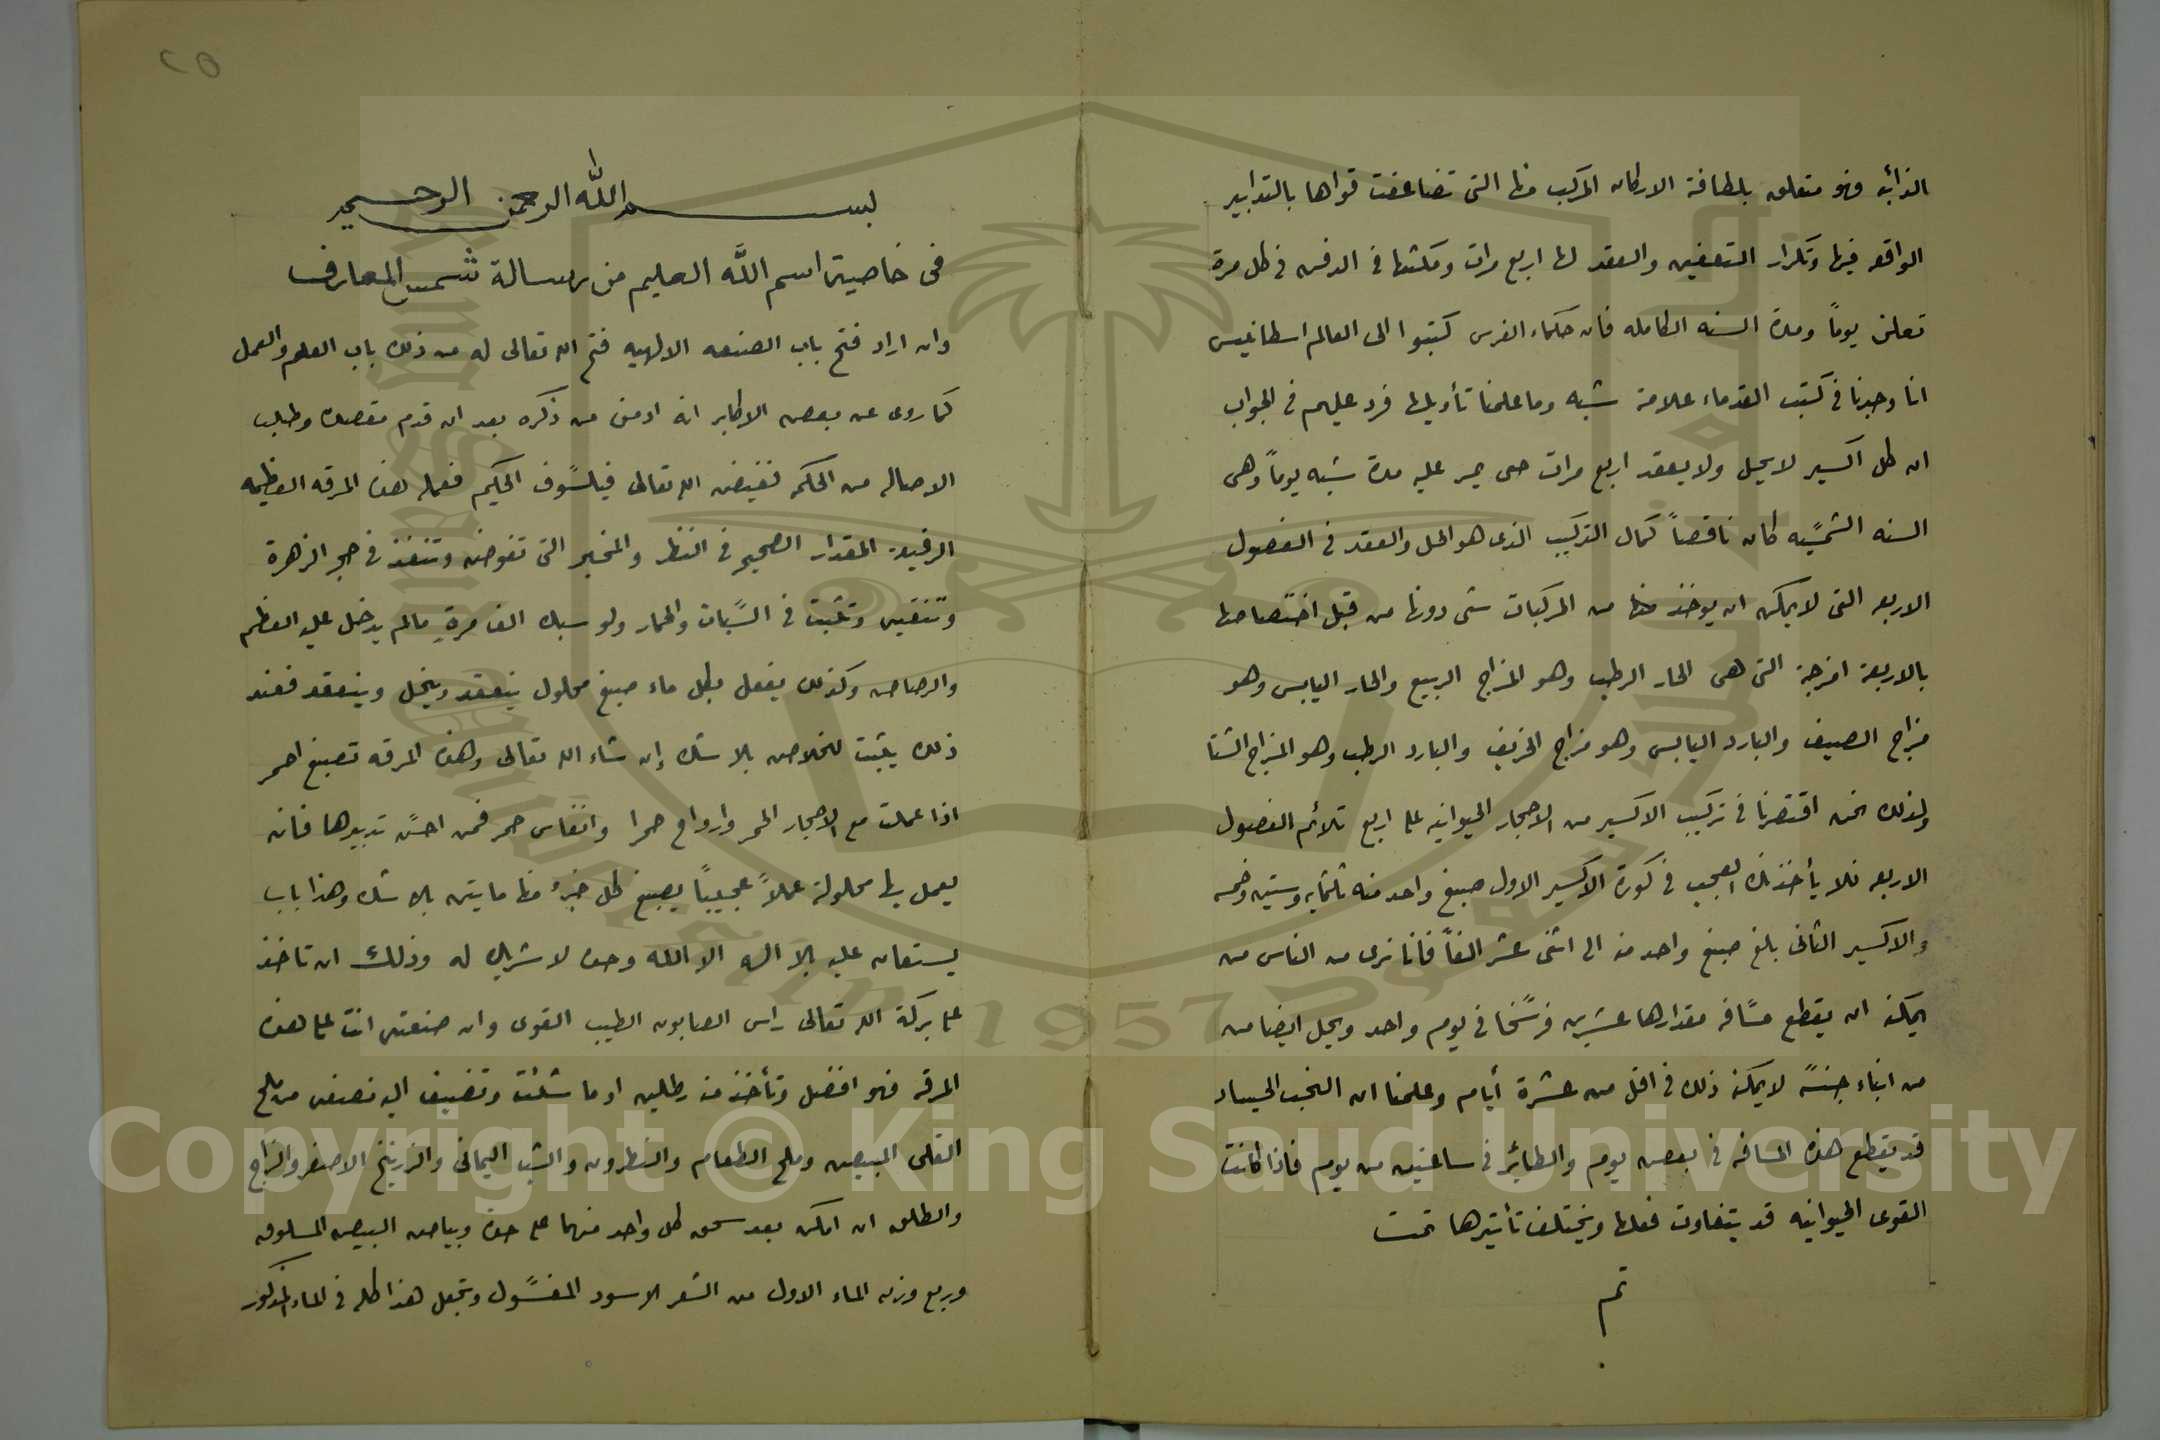 الذائبه فهو متعلق بلطافة الاركان المركب منها التى تضاعفت قواها بالتدابير
الواقعه فيها وتكرار التعفين والعقد لها اربع مرات ومكثها فى الدفن فى كل مرة
يوماً ومدة السنه الكامله فان حكماء الفرس كتبوا الى العالم اسطانيس
انا وجدنا فى كتب القدماء علامة شبه وما علمنا تأويلها فرد عليهم فى الجواب
ان كل اكسير لا يحل ولا يعقد اربع مرات عليه مدة شبه يوماً وهى
السنه الشمسيه كان ناقصاً كمال التركيب الذى هو الحل والعقد فى الفصول
الاربعه التى لا يمكن ان يوخذ منها من المركبات شى دونها من قبل اختصاصها
بالاربعة امزجة التى هى الحار الرطب وهو المزاج الربيع والحار اليابس وهو
مزاج الصيف والبارد اليابس وهو مزاج الخريف والبارد الرطب وهو المزاج الشتا
ولذلك نحن اقتصرنا فى تركيب الاكسير من الاحجار الحيوانيه على اربع تلائم الفصول
الاربعه فلا يأخذنك العجب فى كورة الاكسير الاول صبغ واحد منه ثلثمايه وستين وخمسه
والاكسير الثانى بلغ صبغ واحد منه الى اثنى عشر الفاً فانا نرى من الناس من
يمكنه ان يقطع مسافه مقدارها عشرين فرسخا فى يوم واحد ايضا من
من ابناء جنسه لا يمكنه ذلك فى اقل من عشرة أيام وعلمنا ان النجب
قد يقطع هذه المسافه فى بعض يوم والطائر فى ساعتين من يوم فاذا كانت
القوى الحيوانيه قد يتفاوت فعلها ويختلف تاثيرها تمت
تم
٢٥
بسم الله الرحمن الرحيم
فى خاصية اسم الله العليم من رسالة شمس المعارف
وان اراد فتح باب الصنعه الالهيه فتح الله تعالى له من ذلك باب العلم والعمل
كما روى عن بعض الاكابر انه ادمن من ذكره بعد ان قدم مقصده وطلب
من الحكمه فقيض الله تعالى فيلسوف الحكيم فعمله هذه المرقه العظيمه
المقدار الصحيح فى النظر والمخبر التى تغوص وتنفذ فى حجر الزهرة
وتنقيه وتثبت فى والحمار ولو سبك الف مرة مالم يدخل عليه العظم
والرصاص وكذلك يفعل بكل ماء صبغ محلول ينعقد وينحل وينعقد فعند
ذلك يثبت للخلاص بلا شك إن شاء الله تعالى وهذه المرقه تصبغ احمر
اذا عملت مع الاحجار الحمر وارواح حمرا وانفاس حمر فمن احسن تدبيرها فانه
يعمل بها محلولة عملاً عجيباً يصبغ كل جزء منها مايتين بلا شك وهذا باب
يستعان عليه بلا اله الا الله وحده لا شريك له وذلك ان تاخذ
على بركة الله تعالى راس الصابون الطيب القوى وان صنعته انت على هذه
المرقه فهو افضل وتأخذ منه رطلين او ما شئت وتضيف اليه نصفه من ملح
القلى المبيض وملح الطعام والنطرون والشب اليمانى والزرنيخ الاصفر والزاج
والطلق ان امكن بعد سحق كل واحد منهما على حده وبياض البيض المسلوق
وربع وزن الماء الاول من الشعر الاسود المغسول وتجعل هذا كله فى الماء المذكور
Copyright © King Saud University
King Saud University
1957